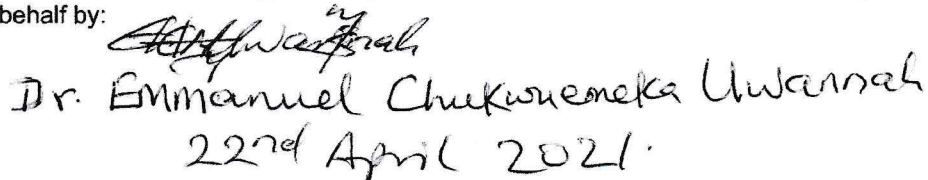 behalf by:
Dr. Emmanuel Chukwuemeka Uwannah
22nd April 2021.